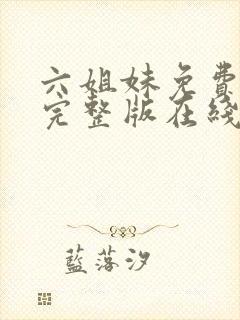 六姐妹免費
完整版在綫
藍落汐